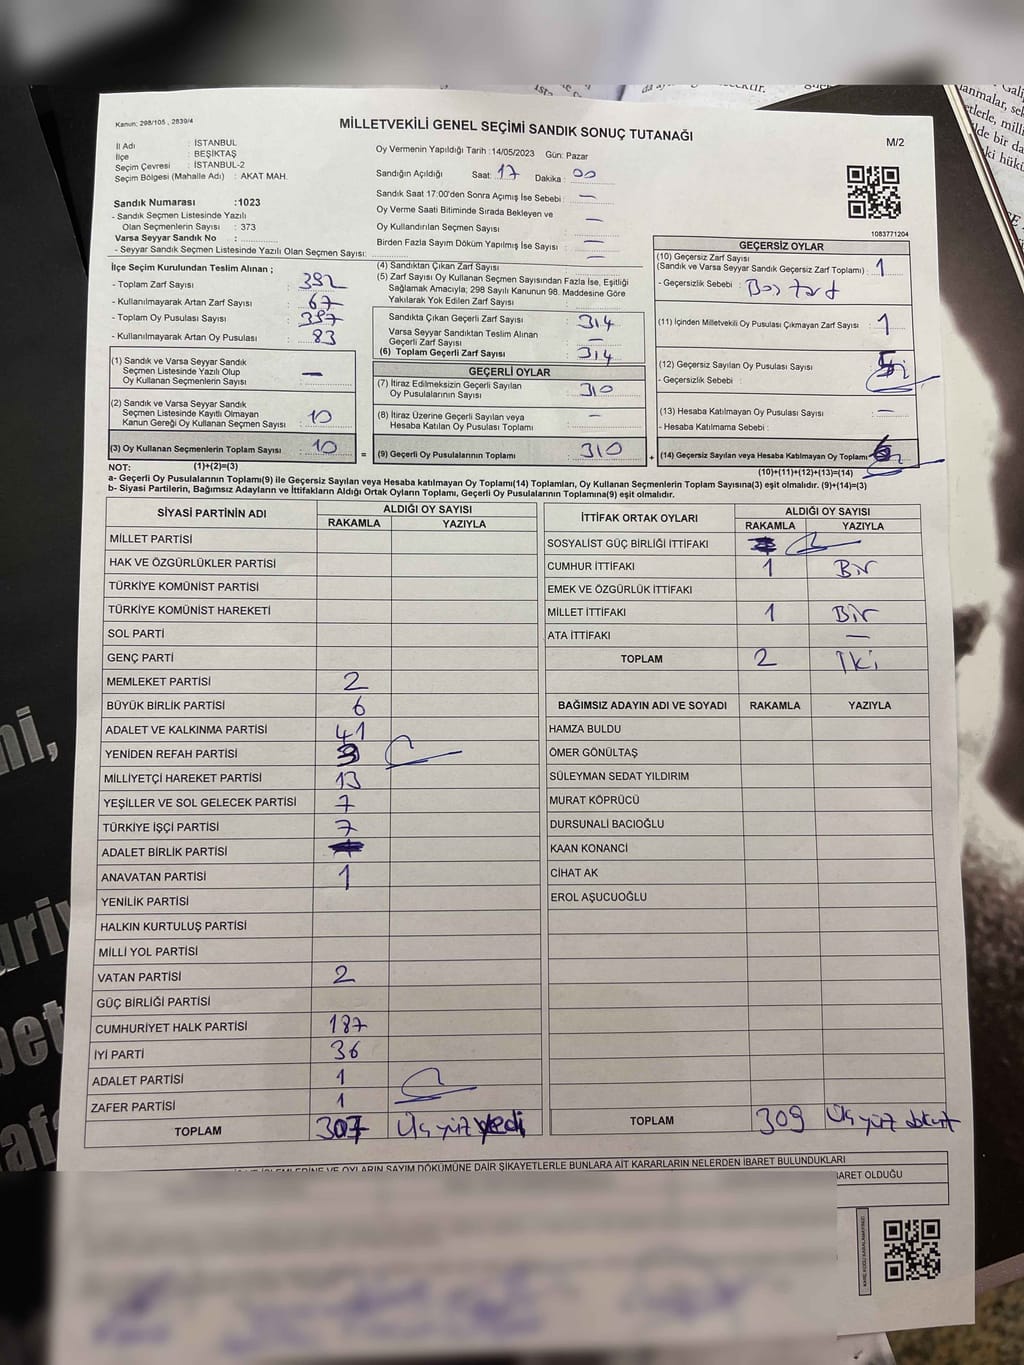 Kanun: 298/105 , 2839/4
MİLLETVEKİLİ GENEL SEÇİMİ SANDIK SONUÇ TUTANAĞI
M/2
İl Adı : İSTANBUL
İlçe : BEŞİKTAŞ
Seçim Çevresi : İSTANBUL-2
Seçim Bölgesi (Mahalle Adı) : AKAT MAH.
Oy Vermenin Yapıldığı Tarih :14/05/2023 Gün: Pazar
Sandığın Açıldığı Saat: 17 Dakika : 00
Sandık Saat 17:00'den Sonra Açımış İse Sebebi : —
Oy Verme Saati Bitiminde Sırada Bekleyen ve
Oy Kullandırılan Seçmen Sayısı —
Birden Fazla Sayım Döküm Yapılmış İse Sayısı —
1083771204
Sandık Numarası :1023
- Sandık Seçmen Listesinde Yazılı
Olan Seçmenlerin Sayısı : 373
Varsa Seyyar Sandık No :
- Seyyar Sandık Seçmen Listesinde Yazılı Olan Seçmen Sayısı:
İlçe Seçim Kurulundan Teslim Alınan ;
- Toplam Zarf Sayısı : 382
- Kullanılmayarak Artan Zarf Sayısı : 67
- Toplam Oy Pusulası Sayısı :
- Kullanılmayarak Artan Oy Pusulası : 83
(1) Sandık ve Varsa Seyyar Sandık
Seçmen Listesinde Yazılı Olup
Oy Kullanan Seçmenlerin Sayısı : —
(2) Sandık ve Varsa Seyyar Sandık
Seçmen Listesinde Kayıtlı Olmayan
Kanun Gereği Oy Kullanan Seçmen Sayısı : 10
(3) Oy Kullanan Seçmenlerin Toplam Sayısı : 10
(4) Sandıktan Çıkan Zarf Sayısı —
(5) Zarf Sayısı Oy Kullanan Seçmen Sayısından Fazla İse, Eşitliği
Sağlamak Amacıyla; 298 Sayılı Kanunun 98. Maddesine Göre
Yakılarak Yok Edilen Zarf Sayısı :
Sandıkta Çıkan Geçerli Zarf Sayısı : 314
Varsa Seyyar Sandıktan Teslim Alınan
Geçerli Zarf Sayısı : —
(6) Toplam Geçerli Zarf Sayısı : 314
GEÇERLİ OYLAR
(7) İtiraz Edilmeksizin Geçerli Sayılan
Oy Pusulalarının Sayısı : 310
(8) İtiraz Üzerine Geçerli Sayılan veya
Hesaba Katılan Oy Pusulası Toplamı : —
= (9) Geçerli Oy Pusulalarının Toplamı : 310 +
GEÇERSİZ OYLAR
(10) Geçersiz Zarf Sayısı
(Sandık ve Varsa Seyyar Sandık Geçersiz Zarf Toplamı) : 1
- Geçersizlik Sebebi : Boş Zarf
(11) İçinden Milletvekili Oy Pusulası Çıkmayan Zarf Sayısı : 1
(12) Geçersiz Sayılan Oy Pusulası Sayısı :
- Geçersizlik Sebebi :
(13) Hesaba Katılmayan Oy Pusulası Sayısı : —
- Hesaba Katılmama Sebebi :
(14) Geçersiz Sayılan veya Hesaba Katılmayan Oy Toplamı
NOT: (1)+(2)=(3)
(10)+(11)+(12)+(13)=(14)
a- Geçerli Oy Pusulalarının Toplamı(9) ile Geçersiz Sayılan veya Hesaba katılmayan Oy Toplamı(14) Toplamları, Oy Kullanan Seçmenlerin Toplam Sayısına(3) eşit olmalıdır. (9)+(14)=(3)
b- Siyasi Partilerin, Bağımsız Adayların ve İttifakların Aldığı Ortak Oyların Toplamı, Geçerli Oy Pusulalarının Toplamına(9) eşit olmalıdır.
SİYASİ PARTİNİN ADI ALDIĞI OY SAYISI
RAKAMLA YAZIYLA
MİLLET PARTİSİ
HAK VE ÖZGÜRLÜKLER PARTİSİ
TÜRKİYE KOMÜNİST PARTİSİ
TÜRKİYE KOMÜNİST HAREKETİ
SOL PARTİ
GENÇ PARTİ
MEMLEKET PARTİSİ 2
BÜYÜK BİRLİK PARTİSİ 6
ADALET VE KALKINMA PARTİSİ 41
YENİDEN REFAH PARTİSİ 3
MİLLİYETÇİ HAREKET PARTİSİ 13
YEŞİLLER VE SOL GELECEK PARTİSİ 7
TÜRKİYE İŞÇİ PARTİSİ 7
ADALET BİRLİK PARTİSİ
ANAVATAN PARTİSİ 1
YENİLİK PARTİSİ
HALKIN KURTULUŞ PARTİSİ
MİLLİ YOL PARTİSİ
VATAN PARTİSİ 2
GÜÇ BİRLİĞİ PARTİSİ
CUMHURİYET HALK PARTİSİ 187
İYİ PARTİ 36
ADALET PARTİSİ 1
ZAFER PARTİSİ 1
TOPLAM 307 Üç yüz yedi
İTTİFAK ORTAK OYLARI ALDIĞI OY SAYISI
RAKAMLA YAZIYLA
SOSYALİST GÜÇ BİRLİĞİ İTTİFAKI
CUMHUR İTTİFAKI 1 Bir
EMEK VE ÖZGÜRLÜK İTTİFAKI
MİLLET İTTİFAKI 1 Bir
ATA İTTİFAKI —
TOPLAM 2 İki
BAĞIMSIZ ADAYIN ADI VE SOYADI RAKAMLA YAZIYLA
HAMZA BULDU
ÖMER GÖNÜLTAŞ
SÜLEYMAN SEDAT YILDIRIM
MURAT KÖPRÜCÜ
DURSUNALİ BACIOĞLU
KAAN KONANCİ
CİHAT AK
EROL AŞUCUOĞLU
TOPLAM 309 Üç yüz dokuz
İŞLEMLERİNE VE OYLARIN SAYIM DÖKÜMÜNE DAİR ŞİKAYETLERLE BUNLARA AİT KARARLARIN NELERDEN İBARET BULUNDUKLARI
BARET OLDUĞU